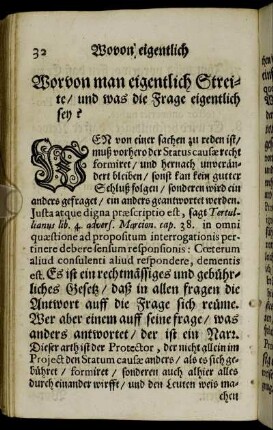 32 Wovon eigentlich
Worvon man eigentlich Strei-
te/ und was die Frage eigentlich
sey?
WEN von einer sachen zu reden ist/
muß vorhero der Status causæ recht
formiret/ und hernach unverän-
dert bleiben/ sonst kan kein gutter
Schluß folgen/ sonderen wird ein
anders gefraget/ ein anders geantwortet werden.
Justa atque digna præscriptio est, sagt Tertul-
lianus lib. 4. advers. Marction. cap. 38. in omni
quæstione ad propositum interrogationis per-
tinere debere sensum responsionis: Cœterum
aliud consulenti aliud respondere, dementis
est. Es ist ein rechtmässiges und gebühr-
liches Gesetz/ daß in allen fragen die
Antwort auff die Frage sich reüme.
Wer aber einem auff seine frage/ was
anders antwortet/ der ist ein Narz.
Dieser arth ist der Protector, der nicht allein im
Project den Statum causæ anders/ als es sich ge-
bühret/ formiret/ sonderen auch alhier alles
durch einander wirfft/ und den Leuten weis ma-
chen